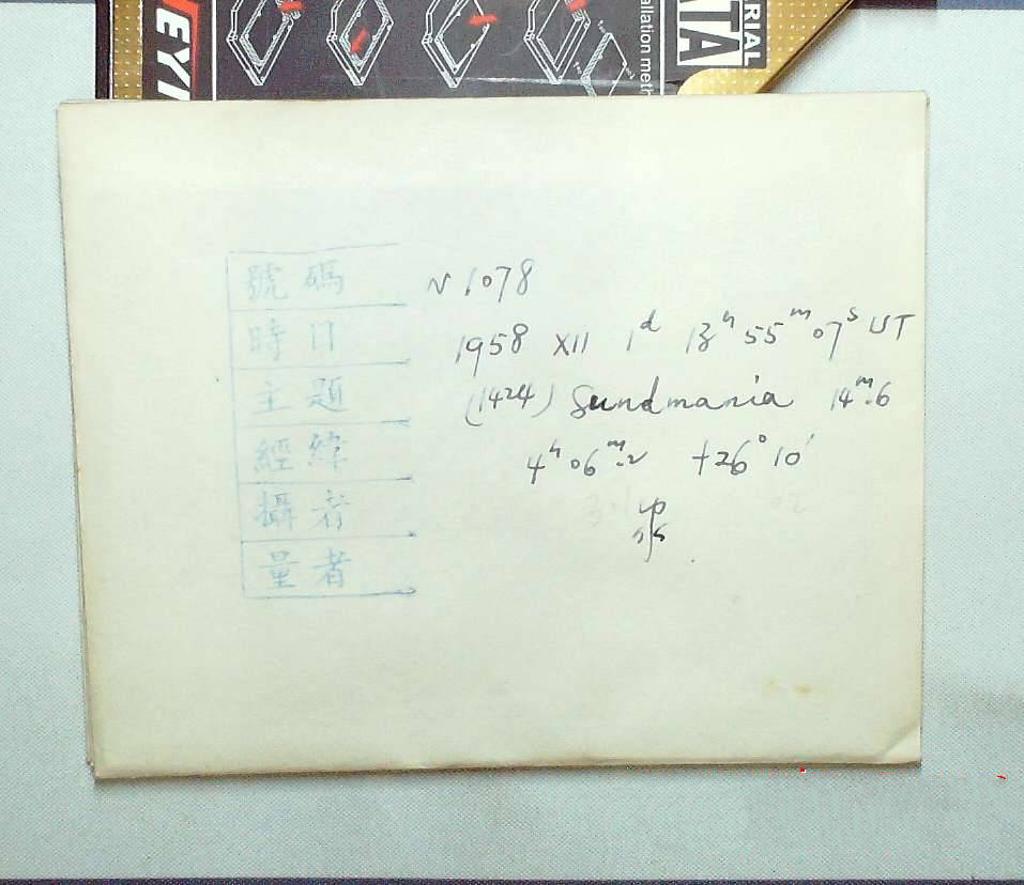 EYI
allation meth
TA
RIAL
號碼 N 1078
時日 1958 XII 1ᵈ 13ʰ 55ᵐ 07ˢ UT
主題 (1424) Sundmania 14ᵐ.6
經緯 4ʰ 06ᵐ.2 +26° 10′
攝者
量者